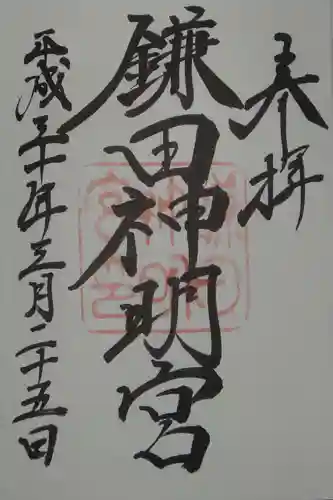 奉拝
鎌田神明宮
平成三十年三月二十五日